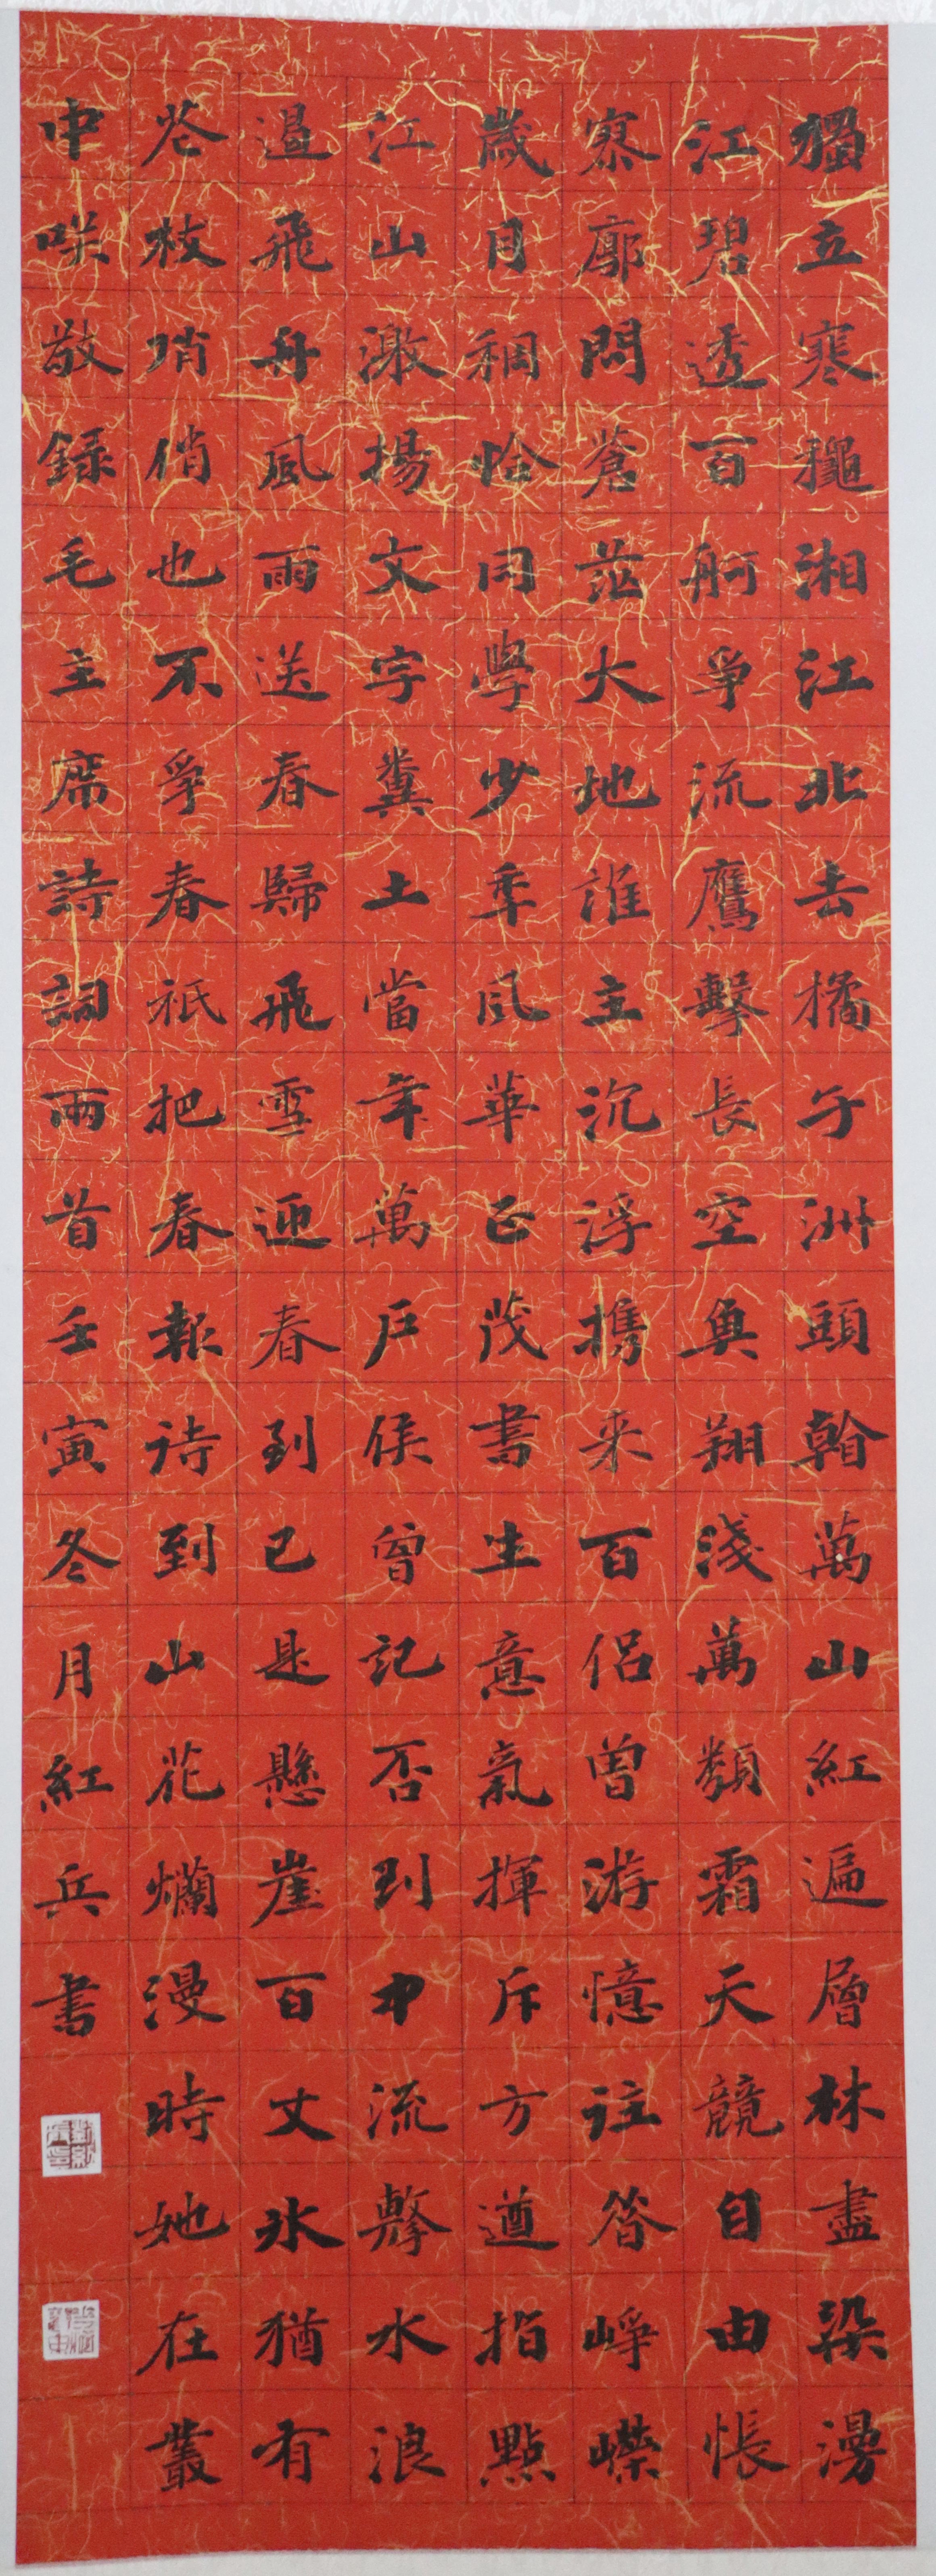 獨立寒穐湘江北去橘子洲頭看萬山紅遍層林盡染漫
江碧透百舸爭流鷹擊長空魚翔淺萬類霜天競自由悵
寥廓問蒼茫大地誰主沉浮攜来百侣曾游憶往昔崢嶸
歲月稠恰同學少秊風華正茂書生意氣揮斥方遒指點
江山激揚文字糞土當年萬户侯曾記否到中流擊水浪
遏飛舟風雨送春歸飛雪迎春到已是懸崖百丈冰猶有
花枝哨俏也不爭春祇把春報待到山花爛漫時她在叢
中咲敬録毛主席詩詞兩首壬寅冬月紅兵書